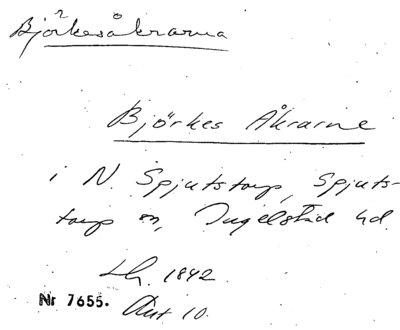 Björkesåkrarna
Björkes Åkrarne
i N. Spjutstorp, Spjuts-
torp sn, Ingelstad hd.
Lh. 1842
Nr 7655. Akt 10.